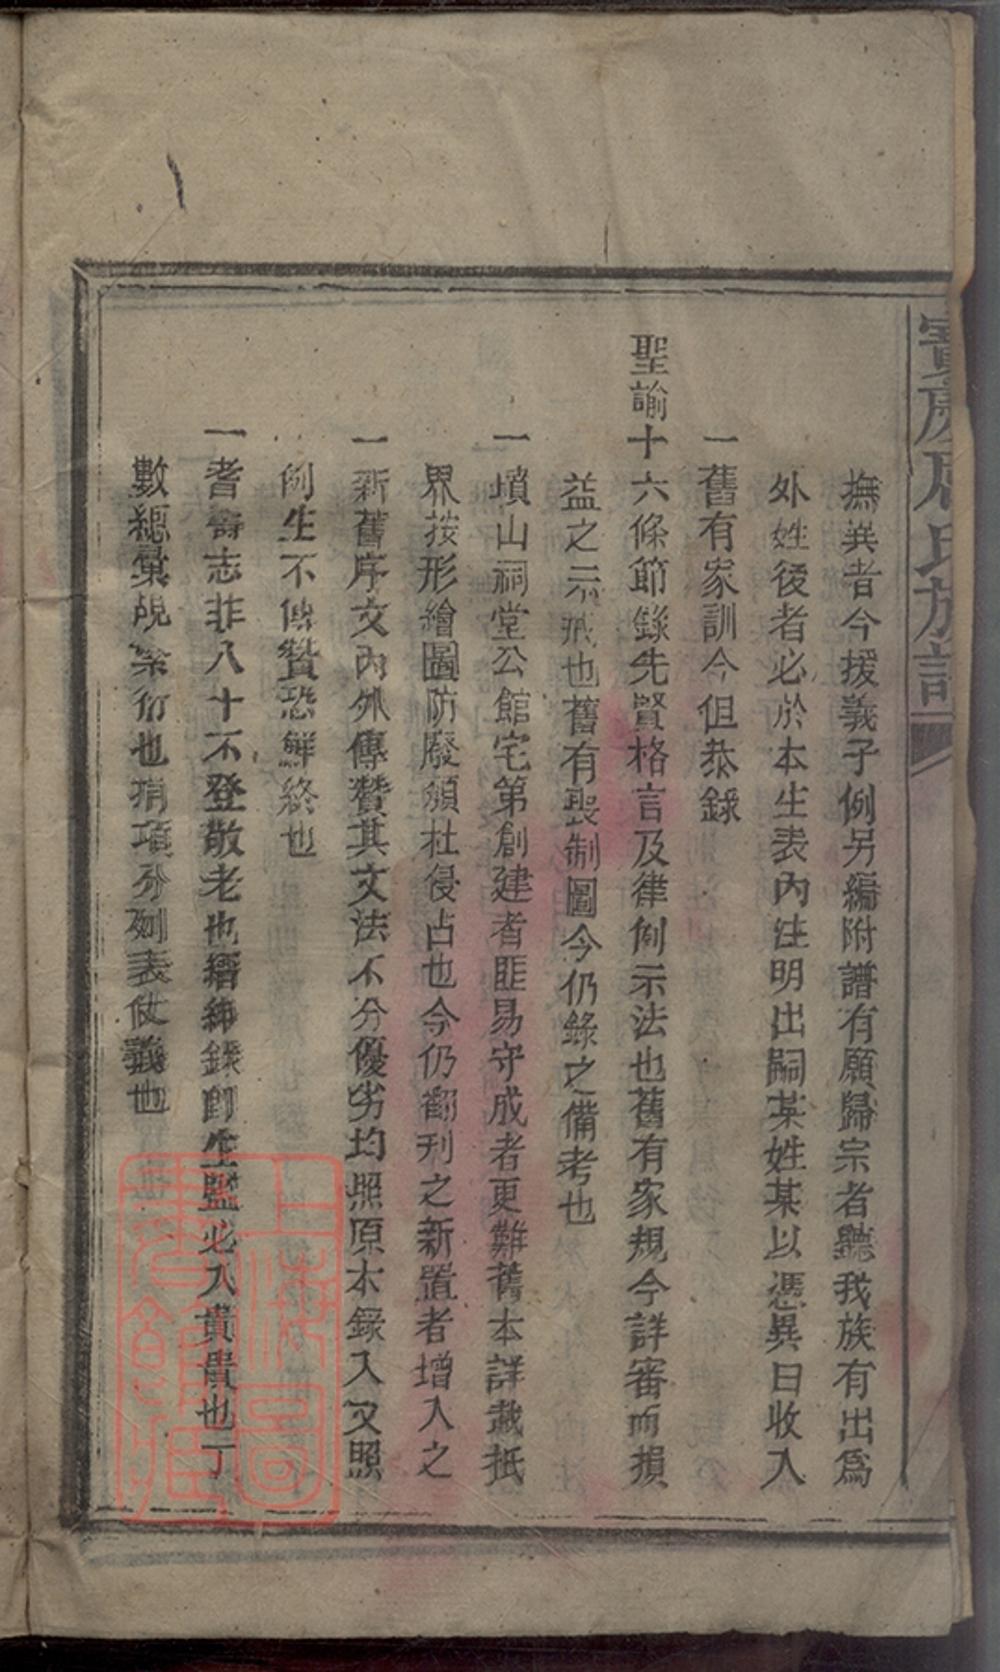 撫異者今援義子例另編附譜有願歸宗者聽我族有出爲
外姓後者必於本生表內注明出嗣某姓某以憑異日收入
一舊有家訓今但恭錄
聖諭十六條節錄先賢格言及律例示法也舊有家規今詳審而損
益之示戒也舊有喪制圖今仍錄之備考也
一墳山祠堂公館宅第創建者匪易守成者更難舊本詳載抵
界按形繪圖防廢頹杜侵占也今仍翻刊之新置者增入之
一新舊序文內外傳贊其文法不分優劣均照原本錄入又照
例生不傳贊恐鮮終也
一耆壽志非八十不登敬老也縉紳錄卽生監必入貴貴也丁
數總彙覘蕃衍也捐項分列表仗義也
氏族譜
上海圖書館藏